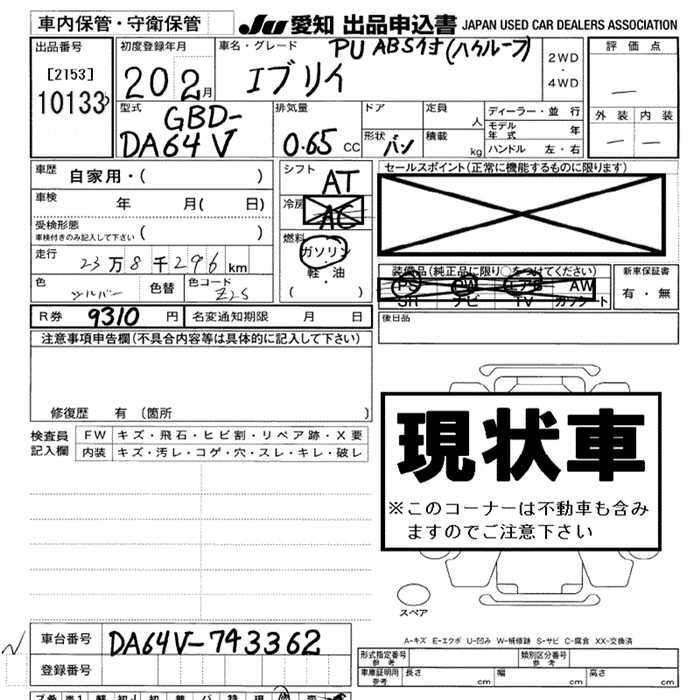 車内保管・守衛保管 JU 愛知 出品申込書 JAPAN USED CAR DEALERS ASSOCIATION
出品番号 初度登録年月 車名・グレード PU ABS付(ハイルーフ) 評価点
[2153] 20 2月 エブリイ 2WD・4WD —
10133 型式 排気量 ドア 定員 人 ディーラー・並行 外装 内装
GBD-DA64V 0.65 CC 形状 バン 積載 kg モデル年式 年 — —
ハンドル 左・右
車歴 自家用・( ) シフト AT セールスポイント(正常に機能するものに限ります)
車検 年 月( 日) 冷房 AC
受検形態 ( )
車検付きのみ記入して下さい 燃料
ガソリン・軽・油
( )
走行 23万8千296km 装備品(純正品に限り○をつけてください) 新車保証書
PS PW エアB AW 有・無
色 シルバー 色替 色コード Z2S SR ナビ TV カセット
R券 9310円 名変通知期限 月 日 後日品
注意事項申告欄(不具合内容等は具体的に記入して下さい)
修復歴 有 (箇所 )
現状車
※このコーナーは不動車も含み
ますのでご注意下さい
検査員 FW キズ・飛石・ヒビ割・リペア跡・X要
記入欄 内装 キズ・汚レ・コゲ・穴・スレ・キレ・破レ
スペア
A-キズ E-エクボ U-凹み W-補修跡 S-サビ C-腐食 XX-交換済
車台番号 DA64V-743362
登録番号
形式指定番号 参考 類別区分番号 参考
車庫証明用 参考 長さ cm 幅 cm 高さ cm